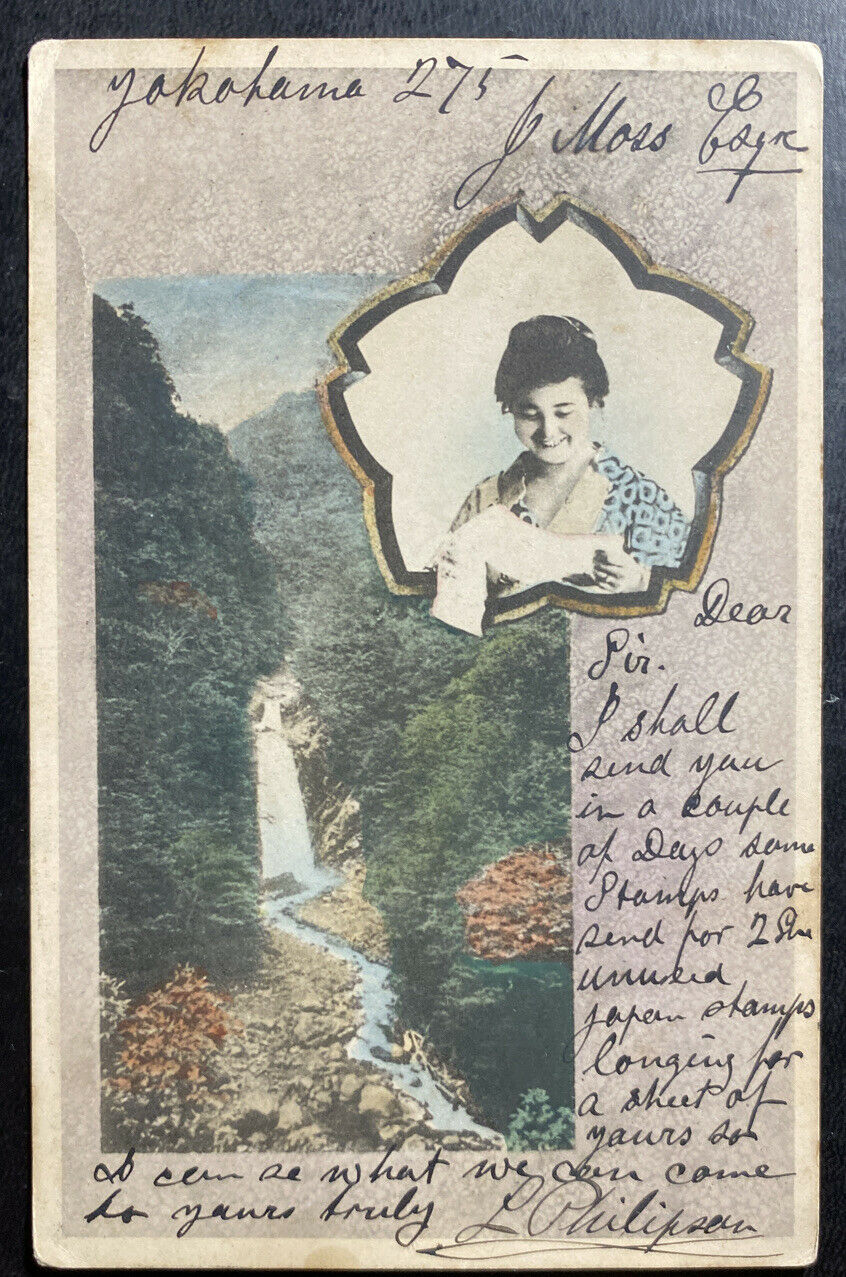 Yokohama 27 5
J Moss Esqr
Dear
Sir.
I shall
send you
in a couple
of Days some
Stamps have
send for 2
unused
japan stamps
longing for
a sheet of
yours so
I can se what we can come
to yours truly L Philipsen